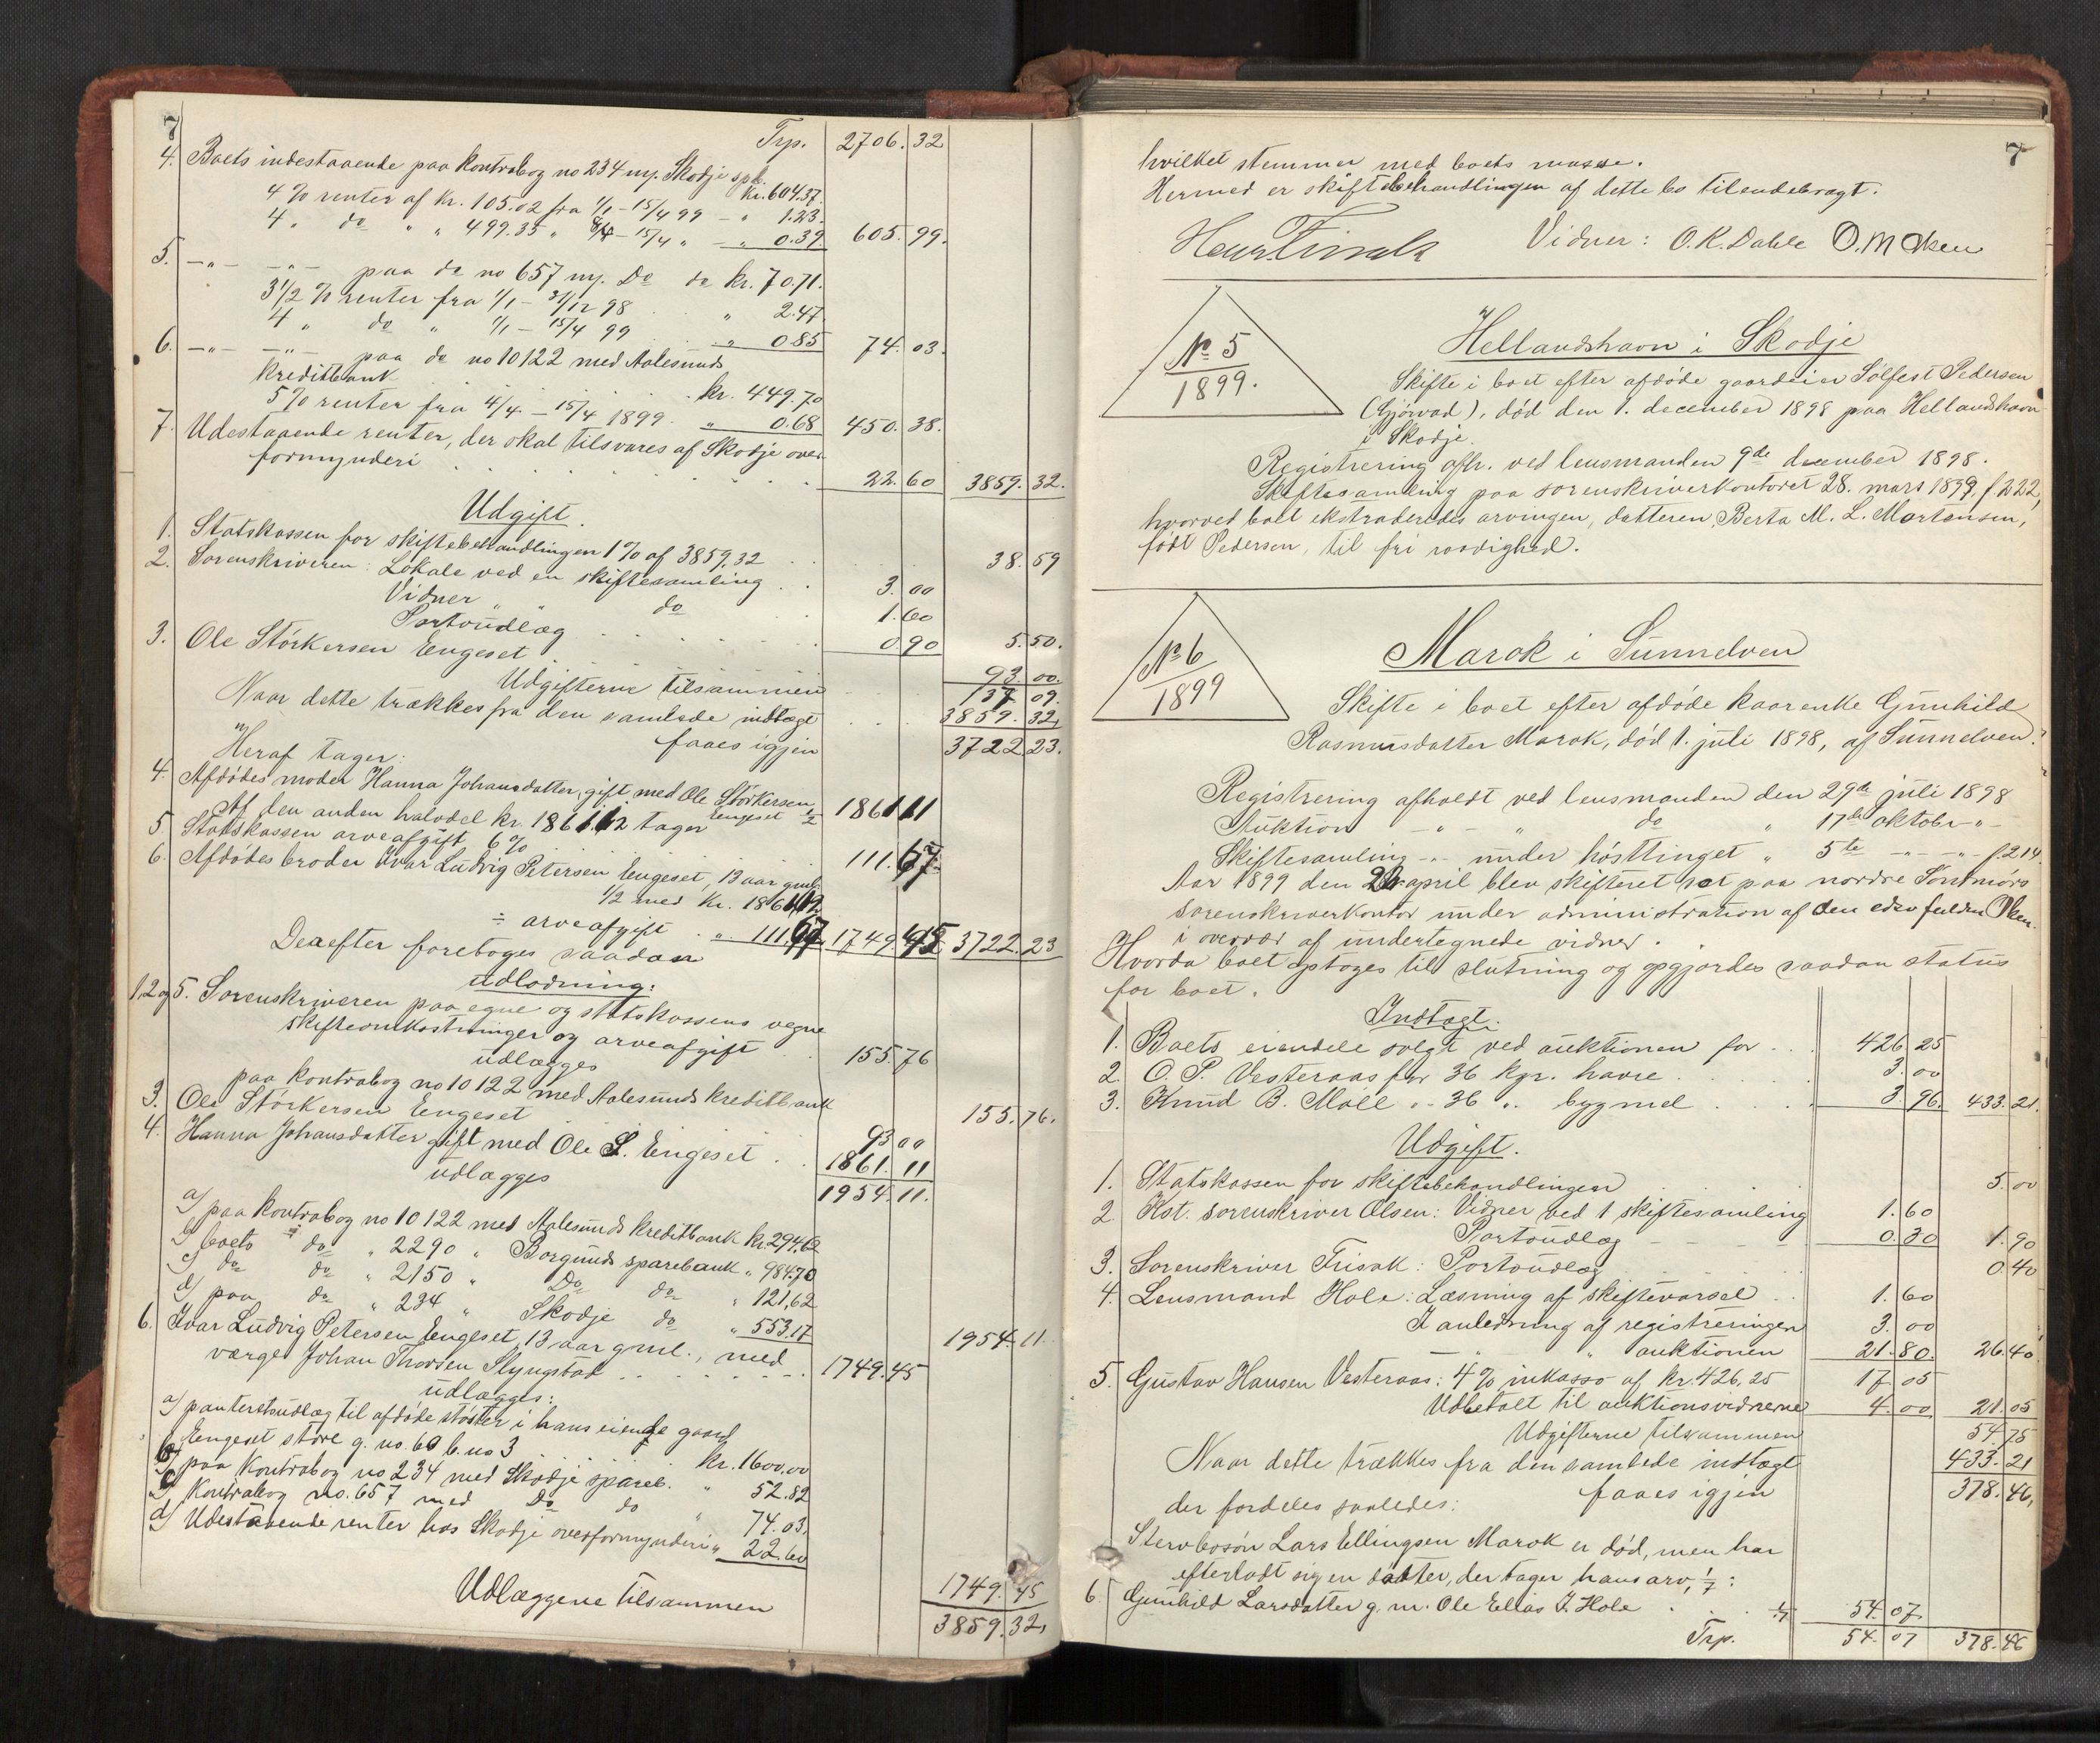 7
Trp. 2706.32
4. Boets indestaaende paa kontrabog no 234 m. Skodje spb. Kr. 604.37.
4 % renter af kr. 105.02 fra 1/1 – 15/4 99 – " 1.23.
4 " do " " 499.35 " 8/4 – 15/4 " – " 0.39 605.99.
5. –"– –"– paa do no 657 m. Do do kr. 70.71.
3 1/2 % renter fra 1/1 – 31/12 98 " 2.47
4 " do " 1/1 – 15/4 99 " 0.85 74.03.
6. –"– –"– paa do no 10122 med Aalesunds
kreditbank kr. 449.70
5 % renter fra 4/4 – 15/4 1899 " 0.68 450.38.
7. Udestaaende renter, der skal tilsvares af Skodje over-
formynderi 22.60 3859.32.
Udgift.
1. Statskassen for skiftebehandlingen 1 % af 3859,32 38.59
2. Sorenskriveren: Lokale ved en skiftesamling 3.00
Vidner " " do 1.60
Portoudlæg 0.90 5.50.
3. Ole Störkersen Engeset 93.00.
Udgifterne tilsammen 137.09.
Naar dette trækkes fra den samlede indtægt 3859.32,
faaes igjen 3722.23.
Heraf tager:
4. Afdødes moder Hanna Johansdatter, gift med Ole Störkersen
Engeset 1/2 1861.11
Af den anden halvdel kr. 1861.12 tager
5. Statskassen arveafgift 6 % 111.67
6. Afdødes broder Ivar Ludvig Petersen Engeset, 13 aar gml.
1/2 med Kr. 1861.12
÷ arveafgift " 111.67 1749.45 3722.23
Derefter foretoges saadan
udlodning:
1, 2 og 5. Sorenskriveren paa egne og statskassens vegne
skifteomkostninger og arveafgift 155.76
udlægges
paa kontrabog no 10122 med Aalesunds kreditbank 155.76.
3. Ole Störkersen Engeset 93.00
4. Hanna Johansdatter gift med Ole S. Engeset 1861.11
udlægges 1954.11.
a) paa kontrabog no 10122 med Aalesunds kreditbank kr. 294.62
b) boets do " 2290 " Borgunds sparebank " 984.70
c) do do " 2150 " Do do " 121,62
d) paa do " 234 " Skodje do " 553.17 1954.11
6. Ivar Ludvig Petersen Engeset, 13 aar gml., med
værge Johan Thorsen Slyngstad 1749.45
udlægges:
a) panteretsudlæg til afdøde søster i hans eiende gaard
Engeset store g. no. 60 b. no 3 kr. 1600,00
b) paa kontrabog no 234 med Skodje spareb. " 52.82
c) Kontrabog no. 657 med Do do " 74.03.
d) Udestaaende renter hos Skodje overformynderi " 22.60
1749.45
Udlæggene tilsammen 3859.32,
7
hvilket stemmer med boets masse.
Hermed er skiftebehandlingen af dette bo tilendebragt.
Vidner: O. K. Dahle O. M Olsen
No 5
1899.
Hellandshavn i Skodje
Skifte i boet efter afdøde gaardeier Sölfest Pedersen
(Gjörvad), död den 1. december 1898 paa Hellandshavn
i Skodje.
Registrering afh. ved lensmanden 9de december 1898.
Skiftesamling paa sorenskriverkontoret 28. mars 1899, f. 222,
hvorved boet ekstraderedes arvingen, datteren Berta M. L. Mortensen,
född Pedersen, til fri raadighed.
No 6
1899
Marok i Sunnelven
Skifte i boet efter afdøde kaarenke Gunhild
Rasmusdatter Marok, död 1. juli 1898, af Sunnelven.
Registrering afholdt ved lensmanden den 29de juli 1898
Auktion –"– " do " 17de oktober –"–
Skiftesamling –"– under hösttinget " 5te –"– –"– f. 214.
Aar 1899 den 24. april blev skifteret sat paa nordre Söndmörs
sorenskriverkontor under administration af den edsv. fuldm. Olsen
i overvær af undertegnede vidner.
Hvorda boet optoges til slutning og opgjordes saadan status
for boet.
Indtægt:
1. Boets eiendele solgt ved auktionen for 426.25
2. O. P. Vesteraas for 36 kgr. havre 3.00
3. Knud B. Möll " 36 " bygmel 3.96. 433.21.
Udgift.
1. Statskassen for skiftebehandlingen 5.00
2. Kst. sorenskriver Olsen: Vidner ved 1 skiftesamling 1.60
Portoudlæg 0.30 1.90
3. Sorenskriver Frisak: Portoudlæg 0.40
4. Lensmand Hole: Læsning af skiftevarsel 1.60
I anledning af registreringen 3.00
–"– " auktionen 21.80. 26.40
5. Gustav Hansen Vesteraas: 4 % inkasso af kr. 426,25 17.05
Udbetalt til auktionsvidnerne 4.00 21.05
Udgifterne tilsammen 54.75
Naar dette trækkes fra den samlede indtægt 433.21
faaes igjen 378.46,
der fordeles saaledes:
Stervbosön Lars Ellingsen Marok er död, men har
efterladt sig en datter, der tager hans arv, 1/7:
6. Gunhild Larsdatter g. m. Ole Elias J. Hole 1/7 54.07
Trp. 54.07 378.46